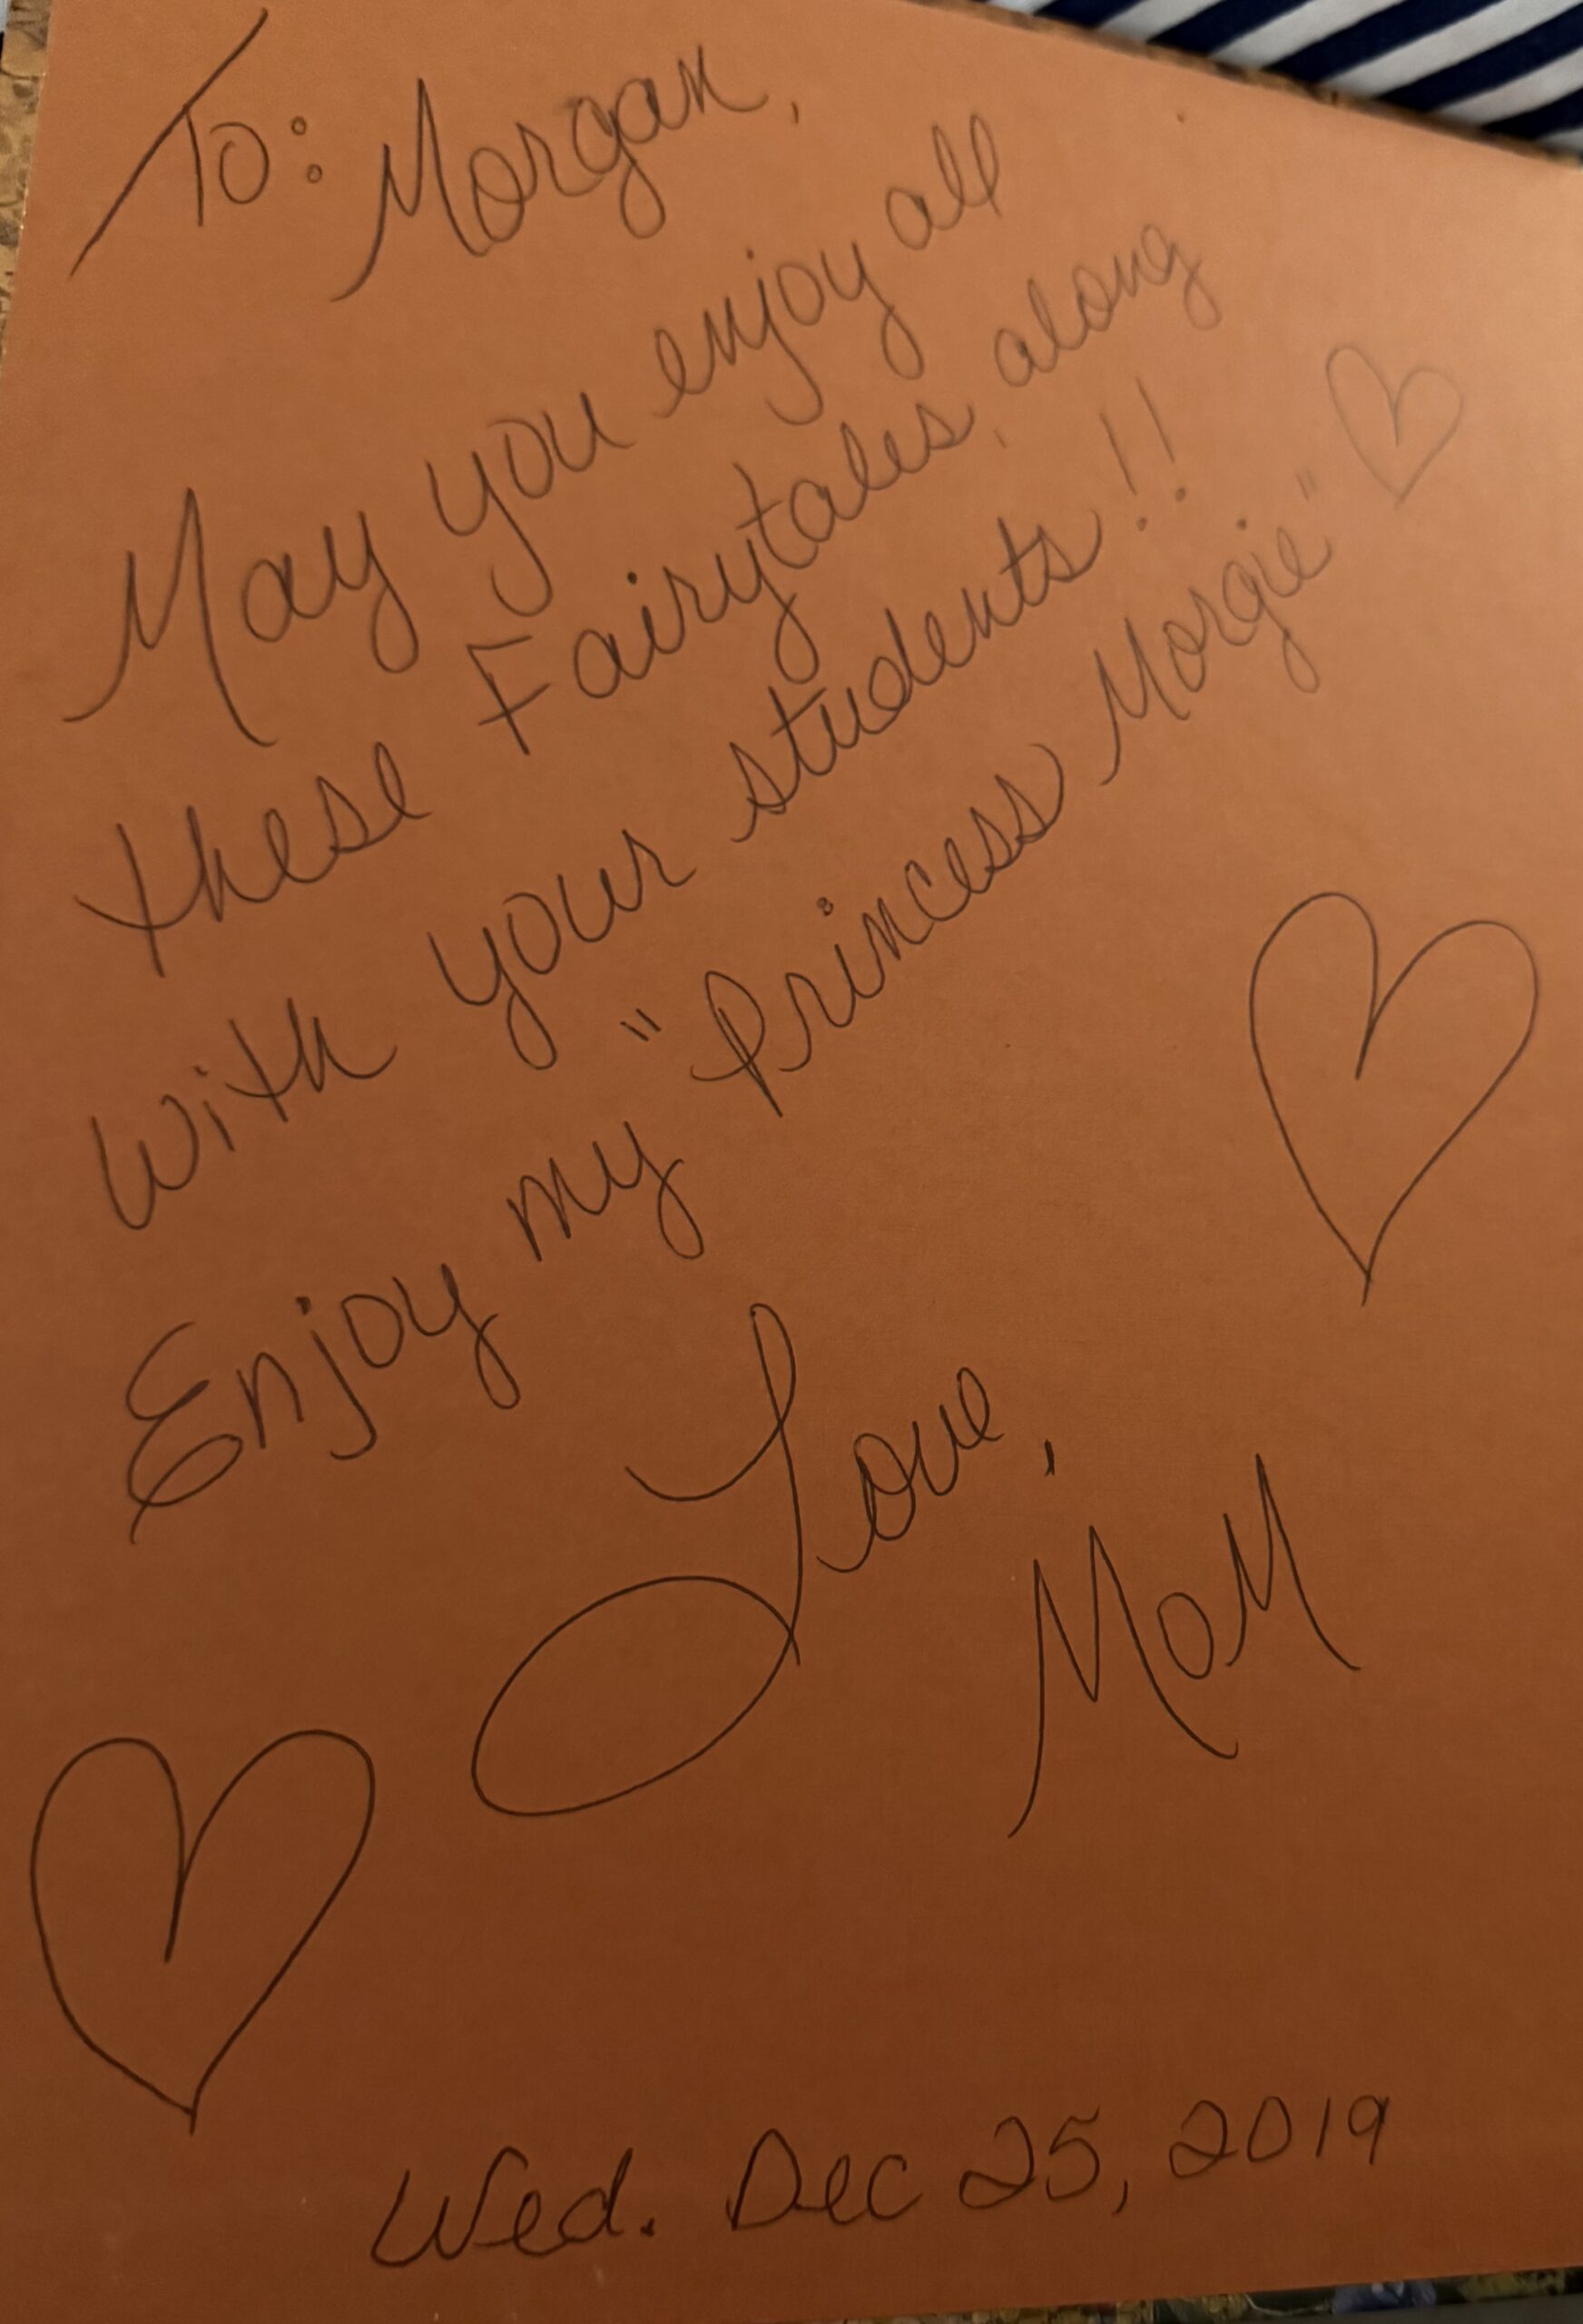 To: Morgan,
May you enjoy all
these Fairytales, along
with your students!!
Enjoy my "Princess Morgie"
Love,
MoM
Wed. Dec 25, 2019